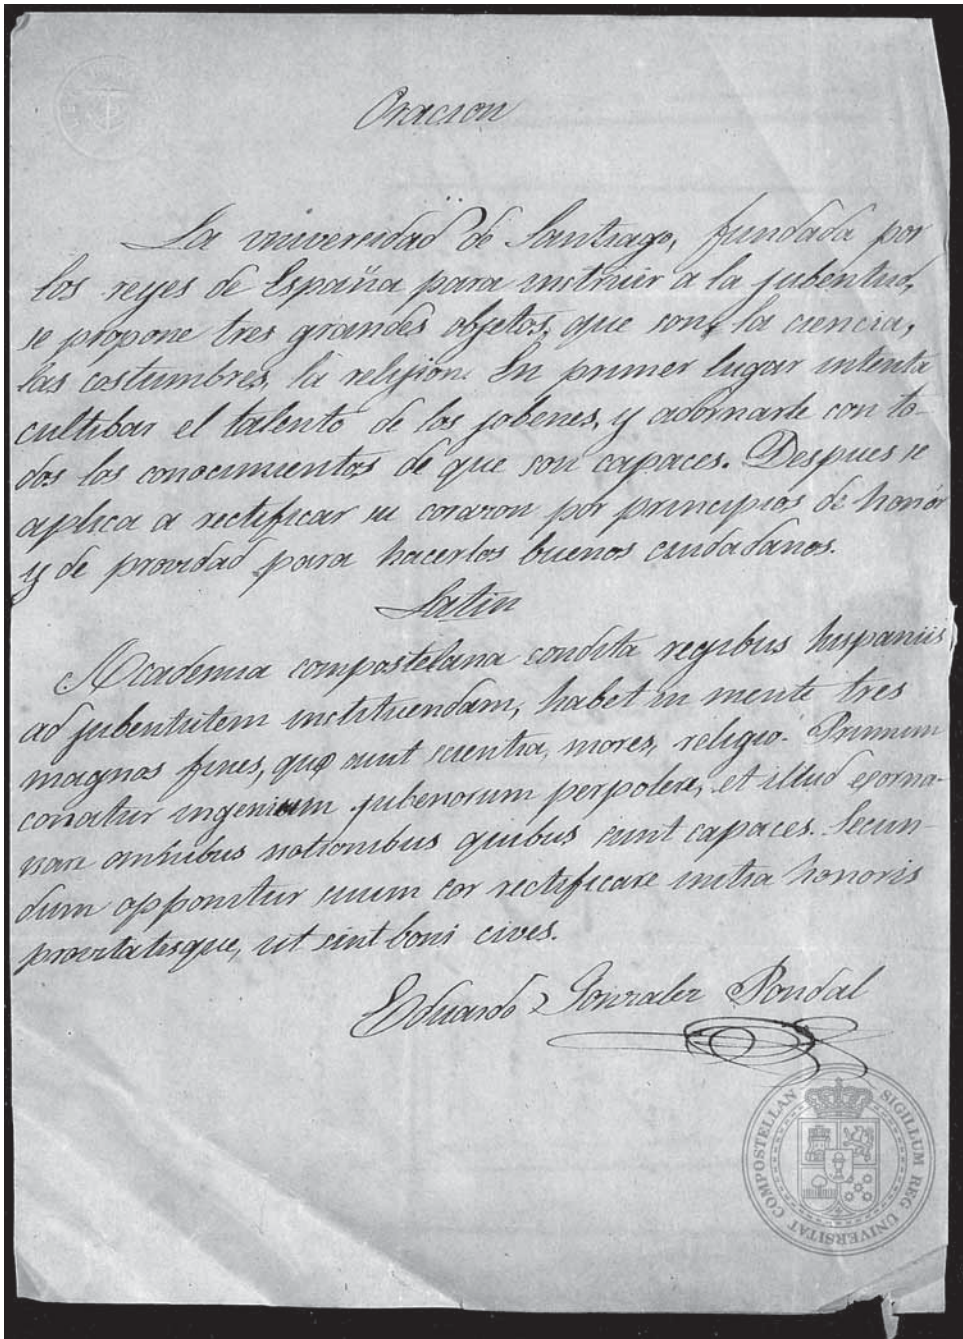 Oracion
La vniversidad de Santiago, fundada por
los reyes de España para instruir a la jubentud,
se propone tres grandes objetos, que son, la ciencia,
las costumbres, la relijion. En primer lugar intenta
cultibar el talento de los jobenes, y adornarle con to-
dos los conocimientos de que son capaces. Despues se
aplica a rectificar su corazon por principios de honor
y de providad para hacerlos buenos ciudadanos.
Latin
Academia compostelana condita regibus hispaniis
ad jubentutem instituendam, habet in mente tres
magnos fines, que sunt scientia, mores, religio. Primum
conatur ingenium jubenorum perpolere, et illud exorna-
nare omnibus notionibus quibus sunt capaces. Secun-
dum apponitur suum cor rectificare intra honoris
provitatisque, ut sint boni cives.
Eduardo Gonzalez Pondal
SIGILLUM REG UNIVERSITAT COMPOSTELLAN